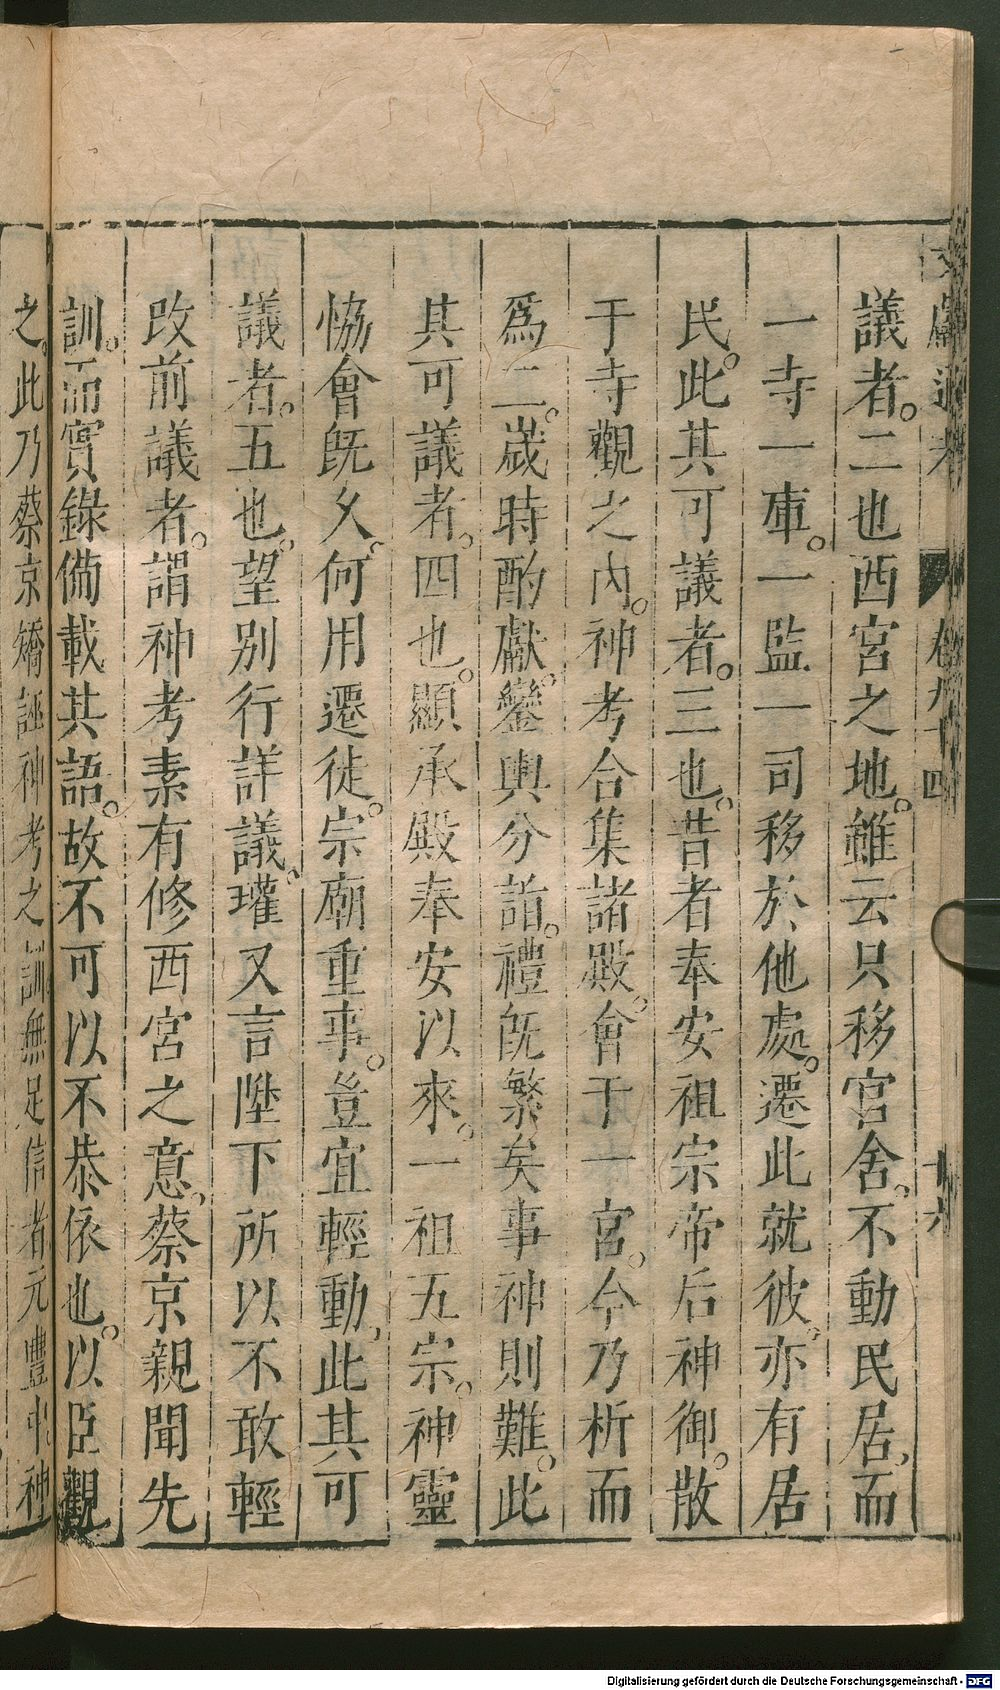 卷九十四
十六
議者。二也西宮之地。雖云只移宮舍。不動民居。而
一寺一庫。一監一司移於他處。遷此就彼。亦有居
民。此其可議者。三也。昔者奉安祖宗帝后神御。散
于寺觀之內。神考合集諸殿。會于一宮。今乃析而
爲二。歲時酌獻。鑾輿分詣。禮旣繁矣事神則難。此
其可議者。四也。顯承殿奉安以來。一祖五宗。神靈
恊會旣久。何用遷徙。宗廟重事。豈宜輕動。此其可
議者。五也。望別行詳議。瓘又言陛下所以不敢輕
改前議者。謂神考素有修西宮之意。蔡京親聞先
訓。而實錄備載其語。故不可以不恭依也。以臣觀
之。此乃蔡京矯誣神考之訓。無足信者元豐中神
Digitalisierung gefördert durch die Deutsche Forschungsgemeinschaft - DFG